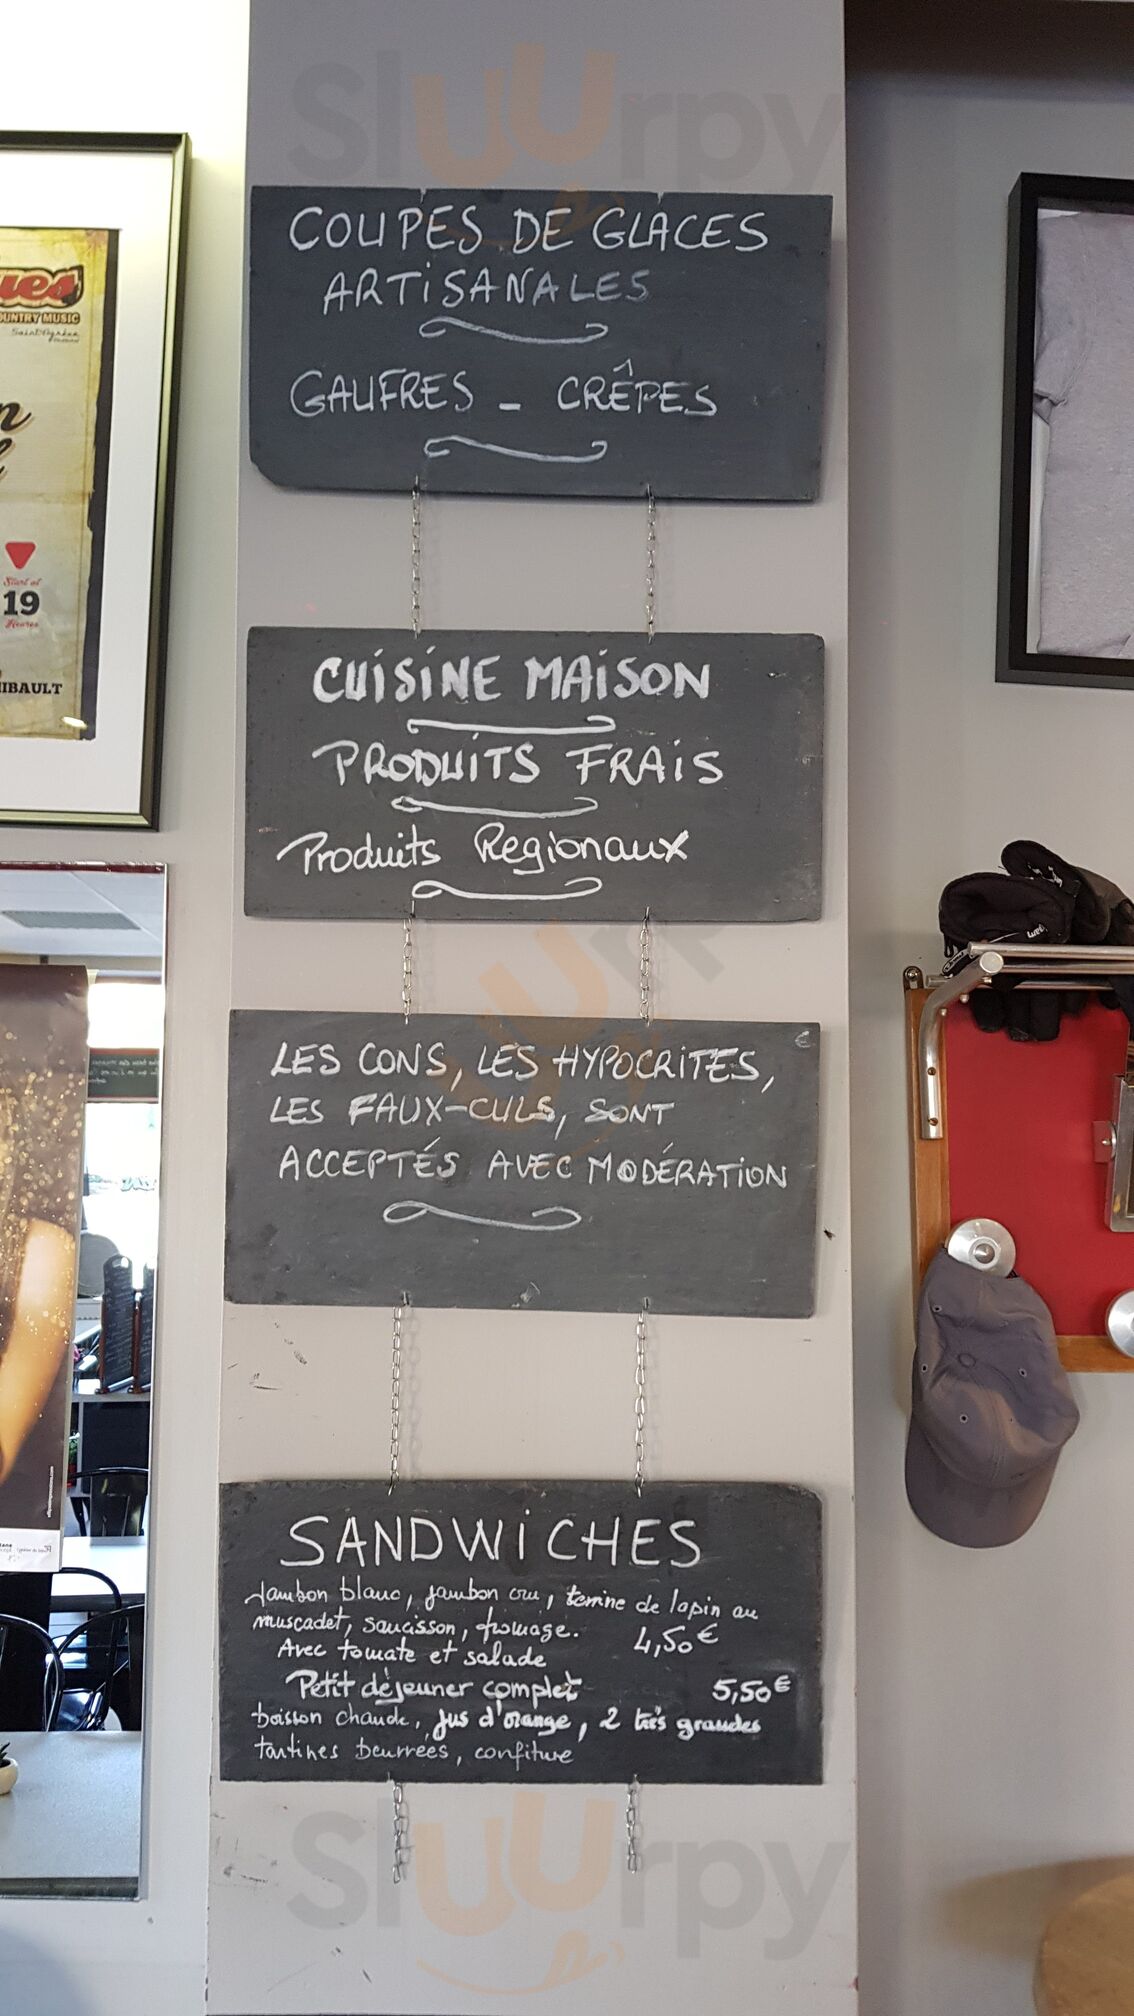 Sluurpy
COUPES DE GLACES
ARTISANALES
GAUFRES - CRÊPES
CUISINE MAISON
PRODUITS FRAIS
Produits Regionaux
€
LES CONS, LES HYPOCRITES,
LES FAUX-CULS, SONT
ACCEPTÉS AVEC MODÉRATION
SANDWICHES
Jambon blanc, jambon cru, terrine de lapin au
muscadet, saucisson, fromage. 4,50€
Avec tomate et salade
Petit déjeuner complet 5,50€
boisson chaude, jus d'orange, 2 très grandes
tartines beurrées, confiture
COUNTRY MUSIC
Start at
19
Heures
IBAULT
Sluurpy